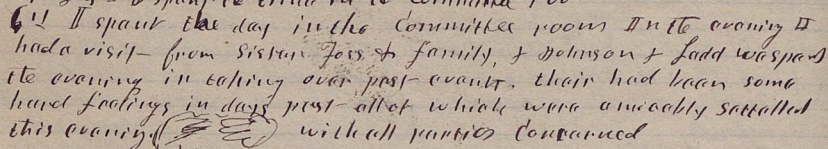 6th I spent the day in the Committee room In the evening I
had a visit from Sister Foss & family, & Johnson & Ladd we spent
the evening in talking over past events. thair had been some
hard feelings in days past all of which were amicably settelled
this evening with all parties Concerned